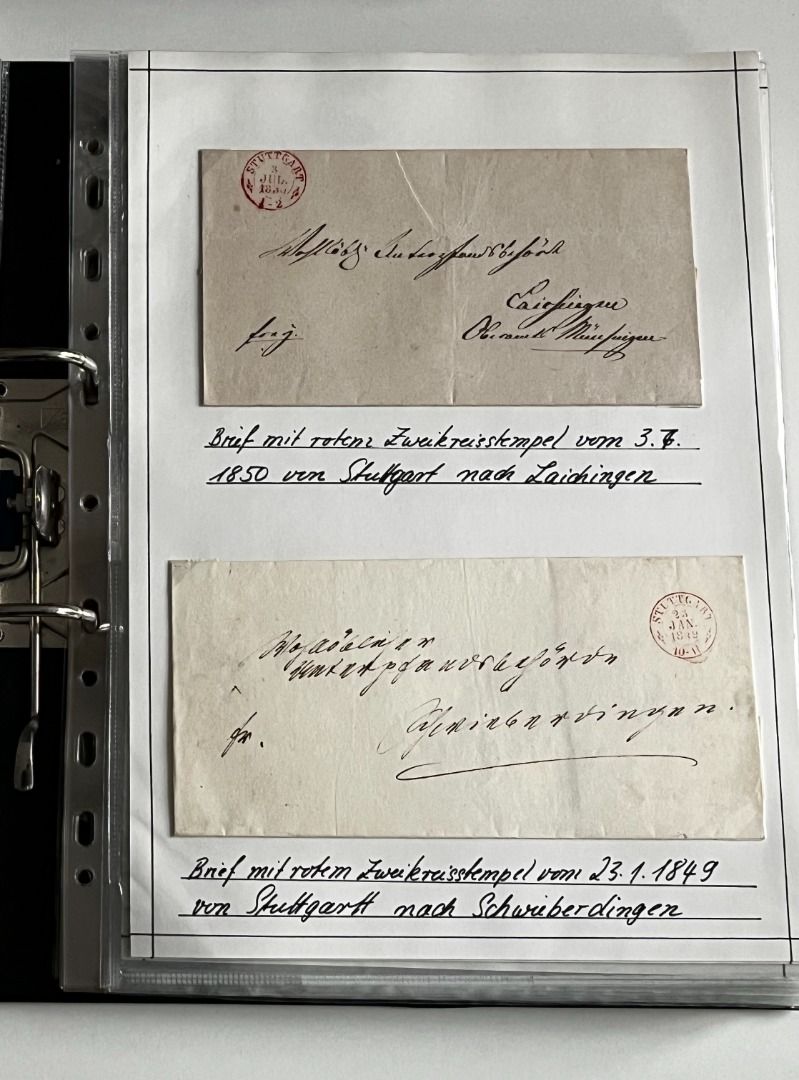 STUTTGART
3
JUL.
1850
1-2
Wohllöbl. Unterpfandsbehörde
Laichingen
Oberamts Münsingen
Brief mit rotem Zweikreisstempel vom 3.7.
1850 von Stuttgart nach Laichingen
STUTTGART
23
JAN.
1849
10-11
Wohllöblicher
Unterpfandsbehörde
fr.
Schwieberdingen.
Brief mit rotem Zweikreisstempel vom 23.1.1849
von Stuttgartt nach Schwieberdingen